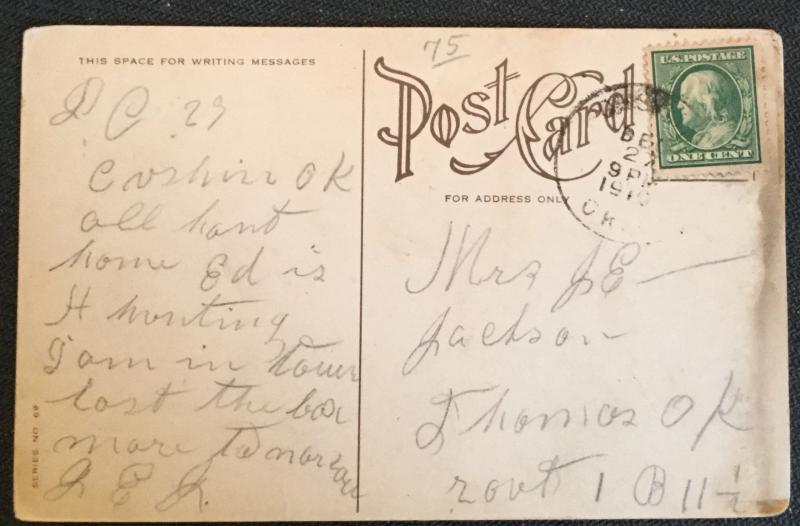 THIS SPACE FOR WRITING MESSAGES
D C 27
Cushin OK
all hant
home Ed is
H hunting
I am in town
lost the box
more tomorrow
J E J
SERIES NO. 69
75
Post Card
FOR ADDRESS ONLY
U.S. POSTAGE
ONE CENT
DE
27
9 PM
1910
OK
Mrs J E
Jackson
Thomas OK
rout 1 B 11 ½